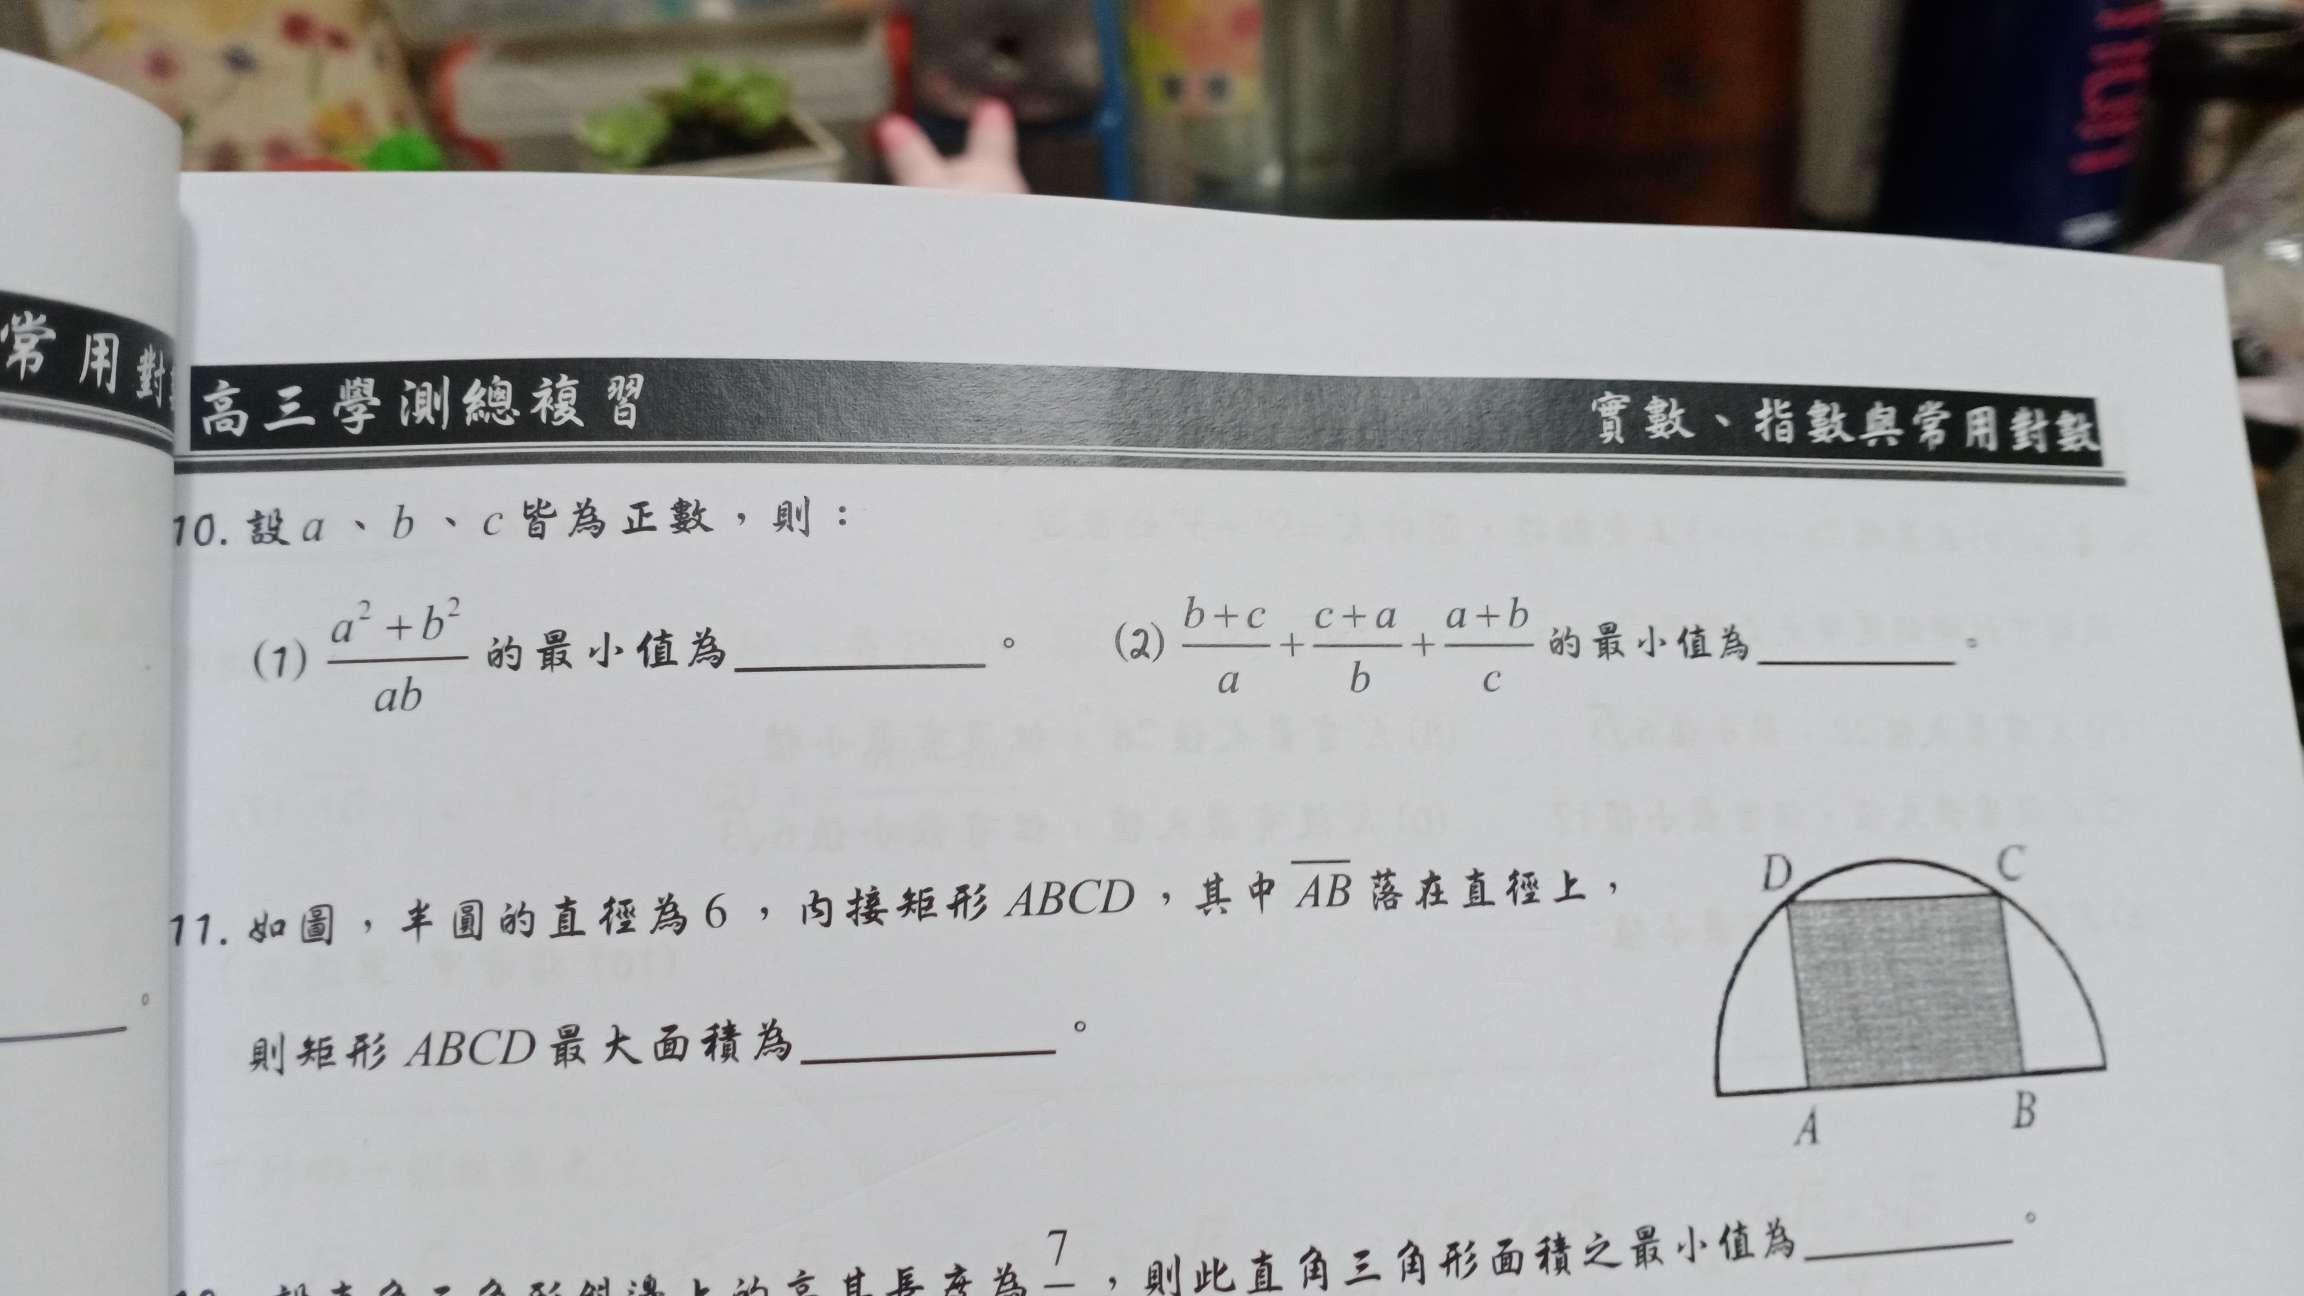 常用對
高三學測總複習
實數、指數與常用對數
10. 設 a、b、c 皆為正數,則:
(1) \frac{a^2+b^2}{ab} 的最小值為______。 (2) \frac{b+c}{a}+\frac{c+a}{b}+\frac{a+b}{c} 的最小值為______。
11. 如圖,半圓的直徑為6,內接矩形 ABCD,其中 \overline{AB} 落在直徑上,
則矩形 ABCD 最大面積為______。
D C
A B
7,則此直角三角形面積之最小值為______。